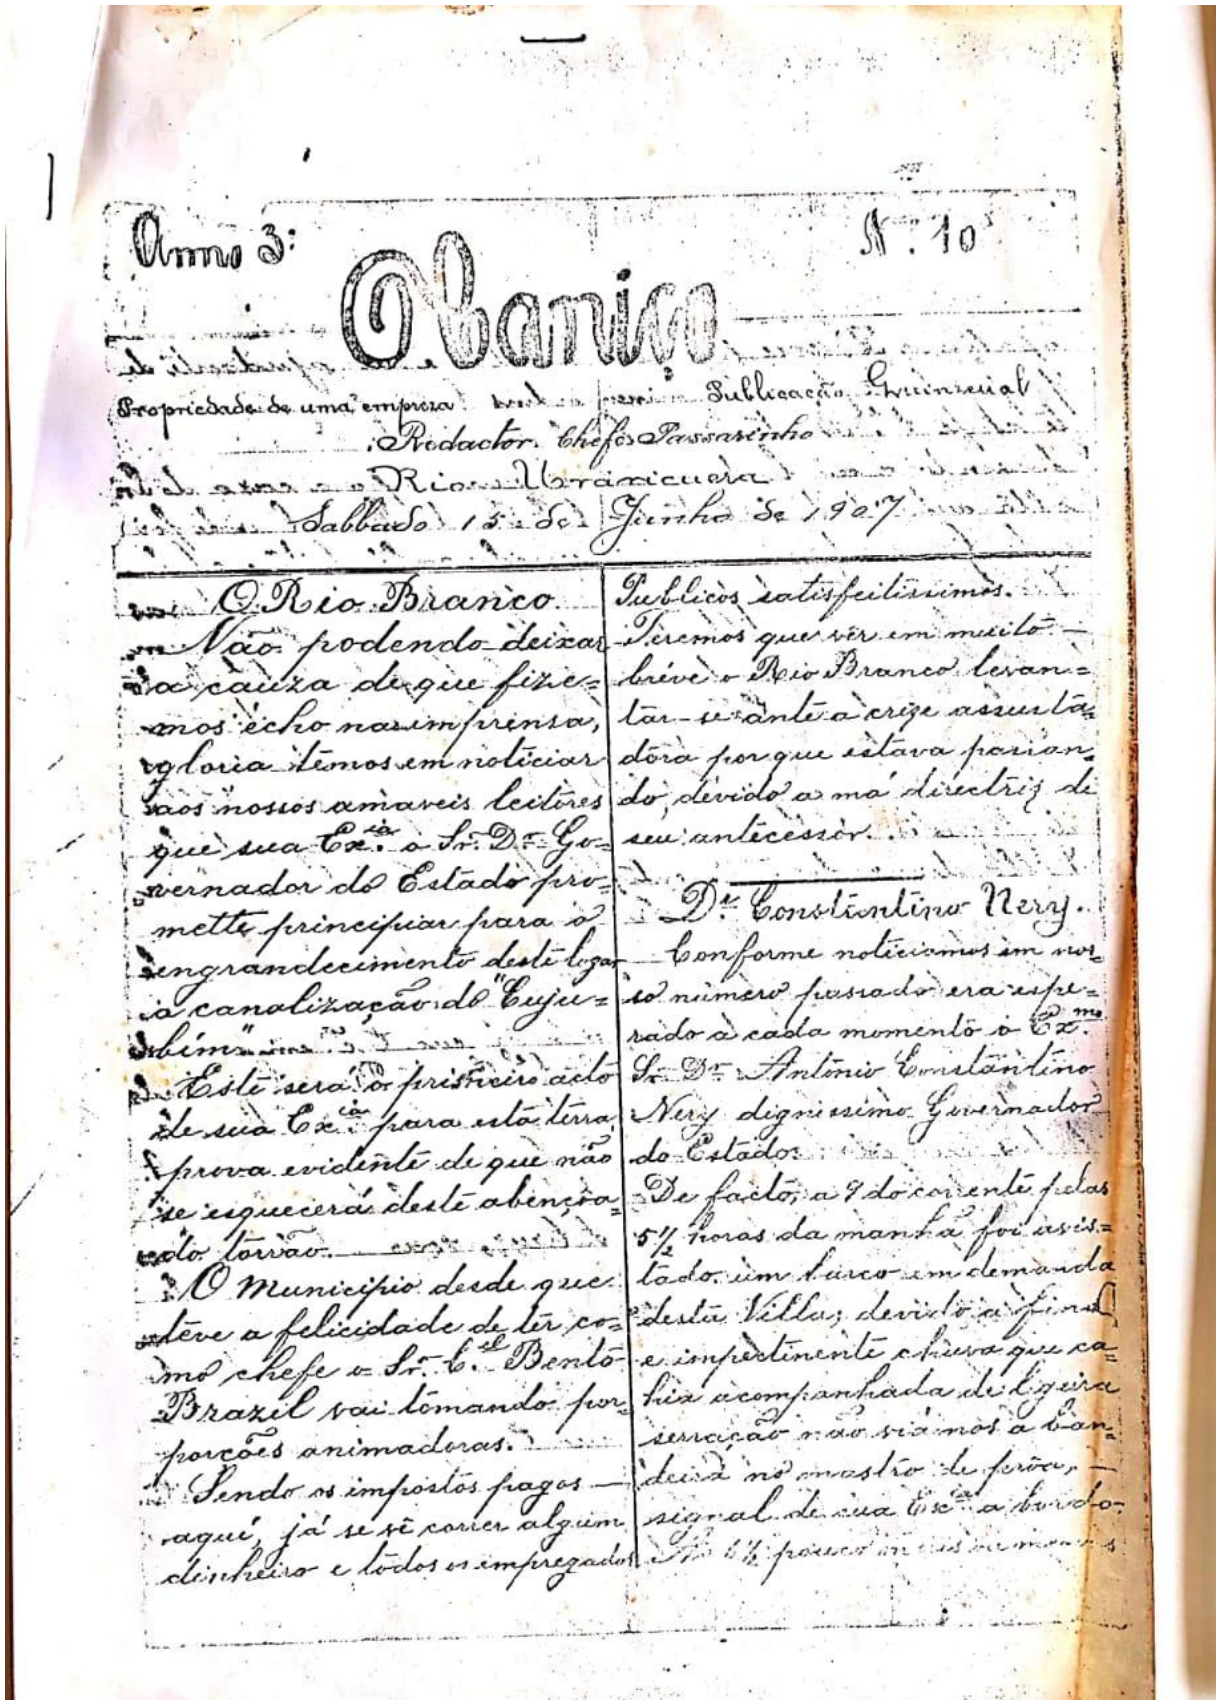 Anno 3º
N. 10
O Caniço
Propriedade de uma empreza
Publicação Quinzenal
Redactor Chefe Passarinho
Rio Uraricuera
Sabbado 15 de Junho de 1907
O Rio Branco
Não podendo deixar
a cauza de que fize=
mos écho na imprensa,
gloria temos em noticiar
aos nossos amaveis leitores
que sua Ex.cia o Sr. Dr. Go=
vernador do Estado pro=
mette principiar para o
engrandecimento deste logar
a canalização do "Cuju=
bim"
Este será o primeiro acto
de sua Ex.cia para esta terra
prova evidente de que não
se esquecerá deste abençoa=
do torrão.
O Municipio desde que
teve a felicidade de ter co=
mo chefe o Sr. C.el Bento
Brazil vai tomando por=
porções animadoras.
Sendo os impostos pagos —
aqui, já se vê correr algum
dinheiro e todos os empregados
Publicos satisfeitissimos.
Teremos que ver em muito —
bréve o Rio Branco levan=
tar-se ante a crize assusta=
dora porque estava passan=
do, devido a má directriz de
seu antecessor.
Dr. Constantino Nery.
Conforme noticiamos em nos=
so número passado era espe=
rado a cada momento o Ex.mo
Sr. Dr. Antonio Constantino
Nery dignissimo Governador
do Estado.
De facto, a 9 do corrente pelas
5 1/2 horas da manhã foi avis=
tado um barco em demanda
desta Villa; devido a fina
e impertinente chuva que ca=
hia acompanhada de ligeira
serração não viamos a ban=
deira no mastro de prôa, —
signal de sua Ex.cia a bordo.
6 1/2 pouco mais